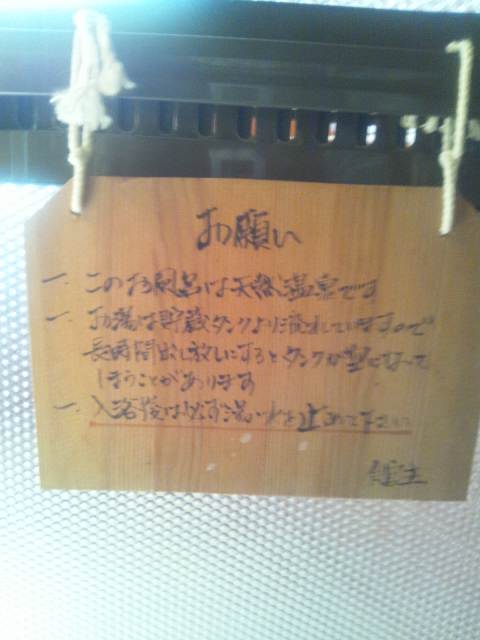 お願い
一、このお風呂は天然温泉です
一、お湯は貯蔵タンクより流れしていますので
長時間出し放しにするとタンクが空になって
しまうことがあります
一、入浴後は必ず湯の 止めて下さい